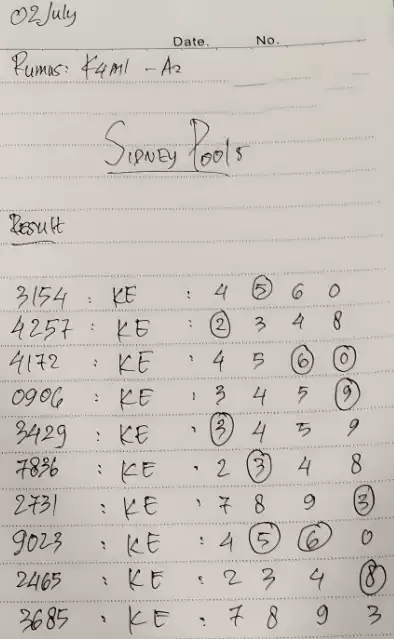 02 July
Date. No.
Rumus: K4M1 - A2
SIDNEY POOLS
Result
3154 : KE : 4 5 6 0
4257 : KE : 2 3 4 8
4172 : KE : 4 5 6 0
0906 : KE : 3 4 5 9
3429 : KE : 3 4 5 9
7836 : KE : 2 3 4 8
2731 : KE : 7 8 9 3
9023 : KE : 4 5 6 0
2465 : KE : 2 3 4 8
3685 : KE : 7 8 9 3